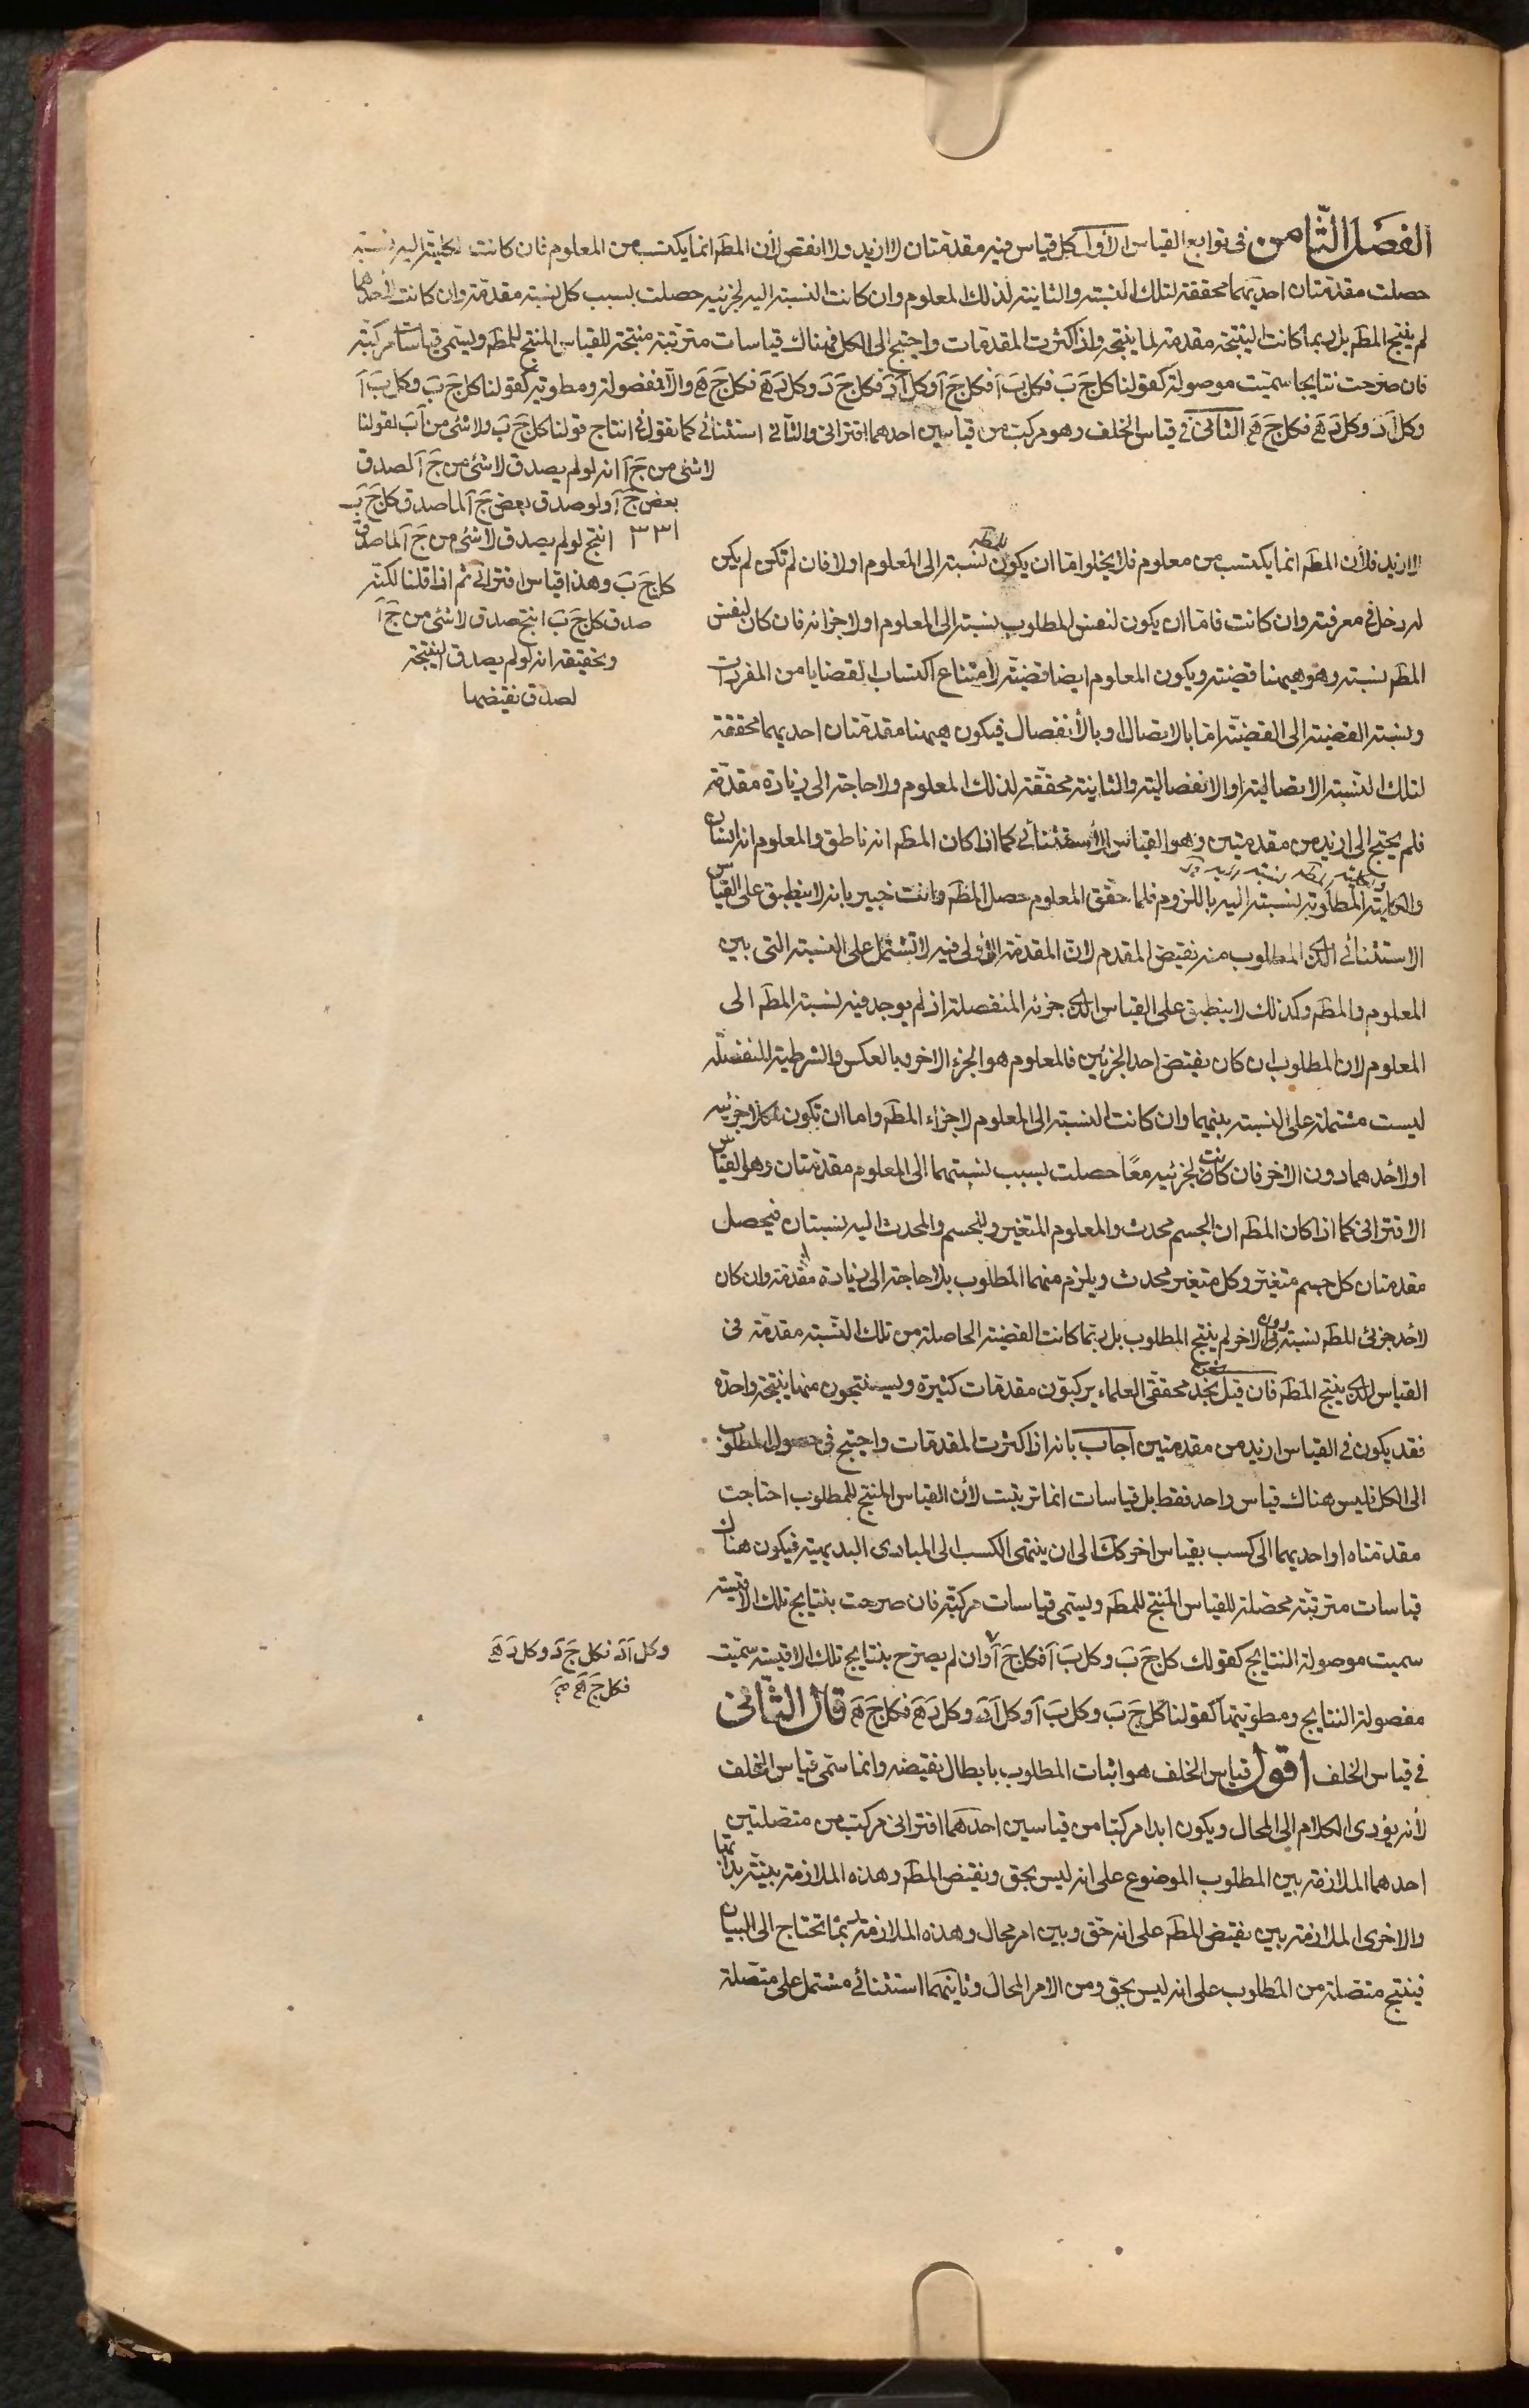 الفصل الثامن فى توابع القياس الأول كل قياس فيه مقدمتان لا ازيد ولا انقص لأن المط انما يكتسب من المعلوم فان كانت لكليته اليه نسبته
حصلت مقدمتان احديهما محققة لتلك النسبة والثانية لذلك المعلوم وان كانت النسبة اليه لجزئيه حصلت بسبب كل نسبة مقدمة وان كانت لأحدهما
لم ينتج المط بل ربما كانت النتيجة مقدمة لما ينتجه واذا كثرت المقدمات واحتيج الى الكل فهناك قياسات مترتبة منتجة للقياس المنتج للمط ويسمى قياسات مركبة
فان صرحت نتايجها سميت موصولة كقولنا كل ج ب فكل ب آ فكل ج آ وكل آ د فكل ج د وكل د ه فكل ج ه والا فمفصولة ومطوية كقولنا كل ج ب وكل ب آ
وكل آ د وكل د ه فكل ج ه الثانى فى قياس الخلف وهو مركب من قياسين احدهما اقترانى والثانى استثنائى كما نقول فى انتاج قولنا كل ج ب ولا شئ من آ ب لقولنا
لا شئ من ج آ انه لو لم يصدق لا شئ من ج آ لصدق
بعض ج آ ولو صدق بعض ج آ لما صدق كل ج ب
انتج لو لم يصدق لا شئ من ج آ لما صدق
كل ج ب وهذا قياس اقترانى ثم اذا قلنا لكنه
صدق كل ج ب انتج صدق لا شئ من ج آ
وتحقيقه انه لو لم يصدق النتيجة
لصدق نقيضها
لا ازيد فلأن المط انما يكتسب من معلوم فلا يخلوا اما ان يكون للمط نسبة الى المعلوم او لا فان لم تكن لم يكن
له دخل فى معرفته وان كانت فاما ان يكون لنفس المطلوب نسبة الى المعلوم او لاجزائه فان كان لنفس
المط نسبة وهو هيهنا قضية ويكون المعلوم ايضا قضية لأمتناع اكتساب القضايا من المفردات
ونسبة القضية الى القضية اما بالاتصال او بالأنفصال فيكون هيهنا مقدمتان احديهما محققة
لتلك النسبة الاتصالية او الانفصالية والثانية محققة لذلك المعلوم ولا حاجة الى زيادة مقدمة
فلم يحتج الى ازيد من مقدمتين وهو القياس الأستثنائى كما اذا كان المط انه ناطق والمعلوم انه انسان
والكلية المطلوبة لنسبته اليه باللزوم فلما حقق المعلوم حصل المط وانت خبير بانه لا ينطبق على القياس
الاستثنائى الذى المطلوب منه نقيض المقدم لان المقدمة الأولى فيه لا تشتمل على النسبة التى بين
المعلوم والمط وكذلك لا ينطبق على القياس الذى جزئه المنفصلة اذ لم يوجد فيه نسبة المط الى
المعلوم لان المطلوب ان كان نقيض احد الجزئين فالمعلوم هو الجزء الاخر وبالعكس والشرطية المنفصلة
ليست مشتملة على النسبة بينهما وان كانت النسبة الى المعلوم لاجزاء المط واما ان تكون لكلا جزئيه
او لأحدهما دون الاخر فان كانت لجزئيه معًا حصلت بسبب نسبتهما الى المعلوم مقدمتان وهو القياس
الاقترانى كما اذا كان المط ان الجسم محدث والمعلوم المتغير وللجسم والمحدث اليه نسبتان فيحصل
مقدمتان كل جسم متغير وكل متغير محدث ويلزم منهما المطلوب بلا حاجة الى زيادة مقدمة وان كان
لأحد جزئى المط نسبة دون الاخر لم ينتج المطلوب بل ربما كانت القضية الحاصلة من تلك النسبة مقدمة فى
القياس الذى ينتج المط فان قيل نجد محققى العلماء يركبون مقدمات كثيرة ويستنتجون منها نتيجة واحدة
فقد يكون فى القياس ازيد من مقدمتين اجاب بانه اذا كثرت المقدمات واحتيج فى حصول المطلوب
الى الكل فليس هناك قياس واحد فقط بل قياسات انما ترتبت لأن القياس المنتج للمطلوب احتاجت
مقدمتاه او احديهما الى كسب بقياس اخر كك الى ان ينتهى الكسب الى المبادى البديهية فيكون هناك
قياسات مترتبة محصلة للقياس المنتج للمط ويسمى قياسات مركبة فان صرحت بنتايج تلك الاقيسة
سميت موصولة النتايج كقولك كل ج ب وكل ب آ فكل ج آ وان لم يصرح بنتايج تلك الاقيسة سميت
وكل آ د فكل ج د وكل د ه
فكل ج ه
مفصولة النتايج ومطويتها كقولنا كل ج ب وكل ب آ وكل آ د وكل د ه فكل ج ه قال الثانى
فى قياس الخلف اقول قياس الخلف هو اثبات المطلوب بابطال نقيضه وانما سمى قياس الخلف
لأنه يؤدى الكلام الى المحال ويكون ابدا مركبا من قياسين احدهما اقترانى مركب من متصلتين
احدهما الملازمة بين المطلوب الموضوع على انه ليس بحق ونقيض المط وهذه الملازمة بينة بذاتها
والاخرى الملازمة بين نقيض المط على انه حق وبين امر محال وهذه الملازمة ربما تحتاج الى البيان
فينتج متصلة من المطلوب على انه ليس بحق ومن الامر المحال وثانيهما استثنائى مشتمل على متصلة